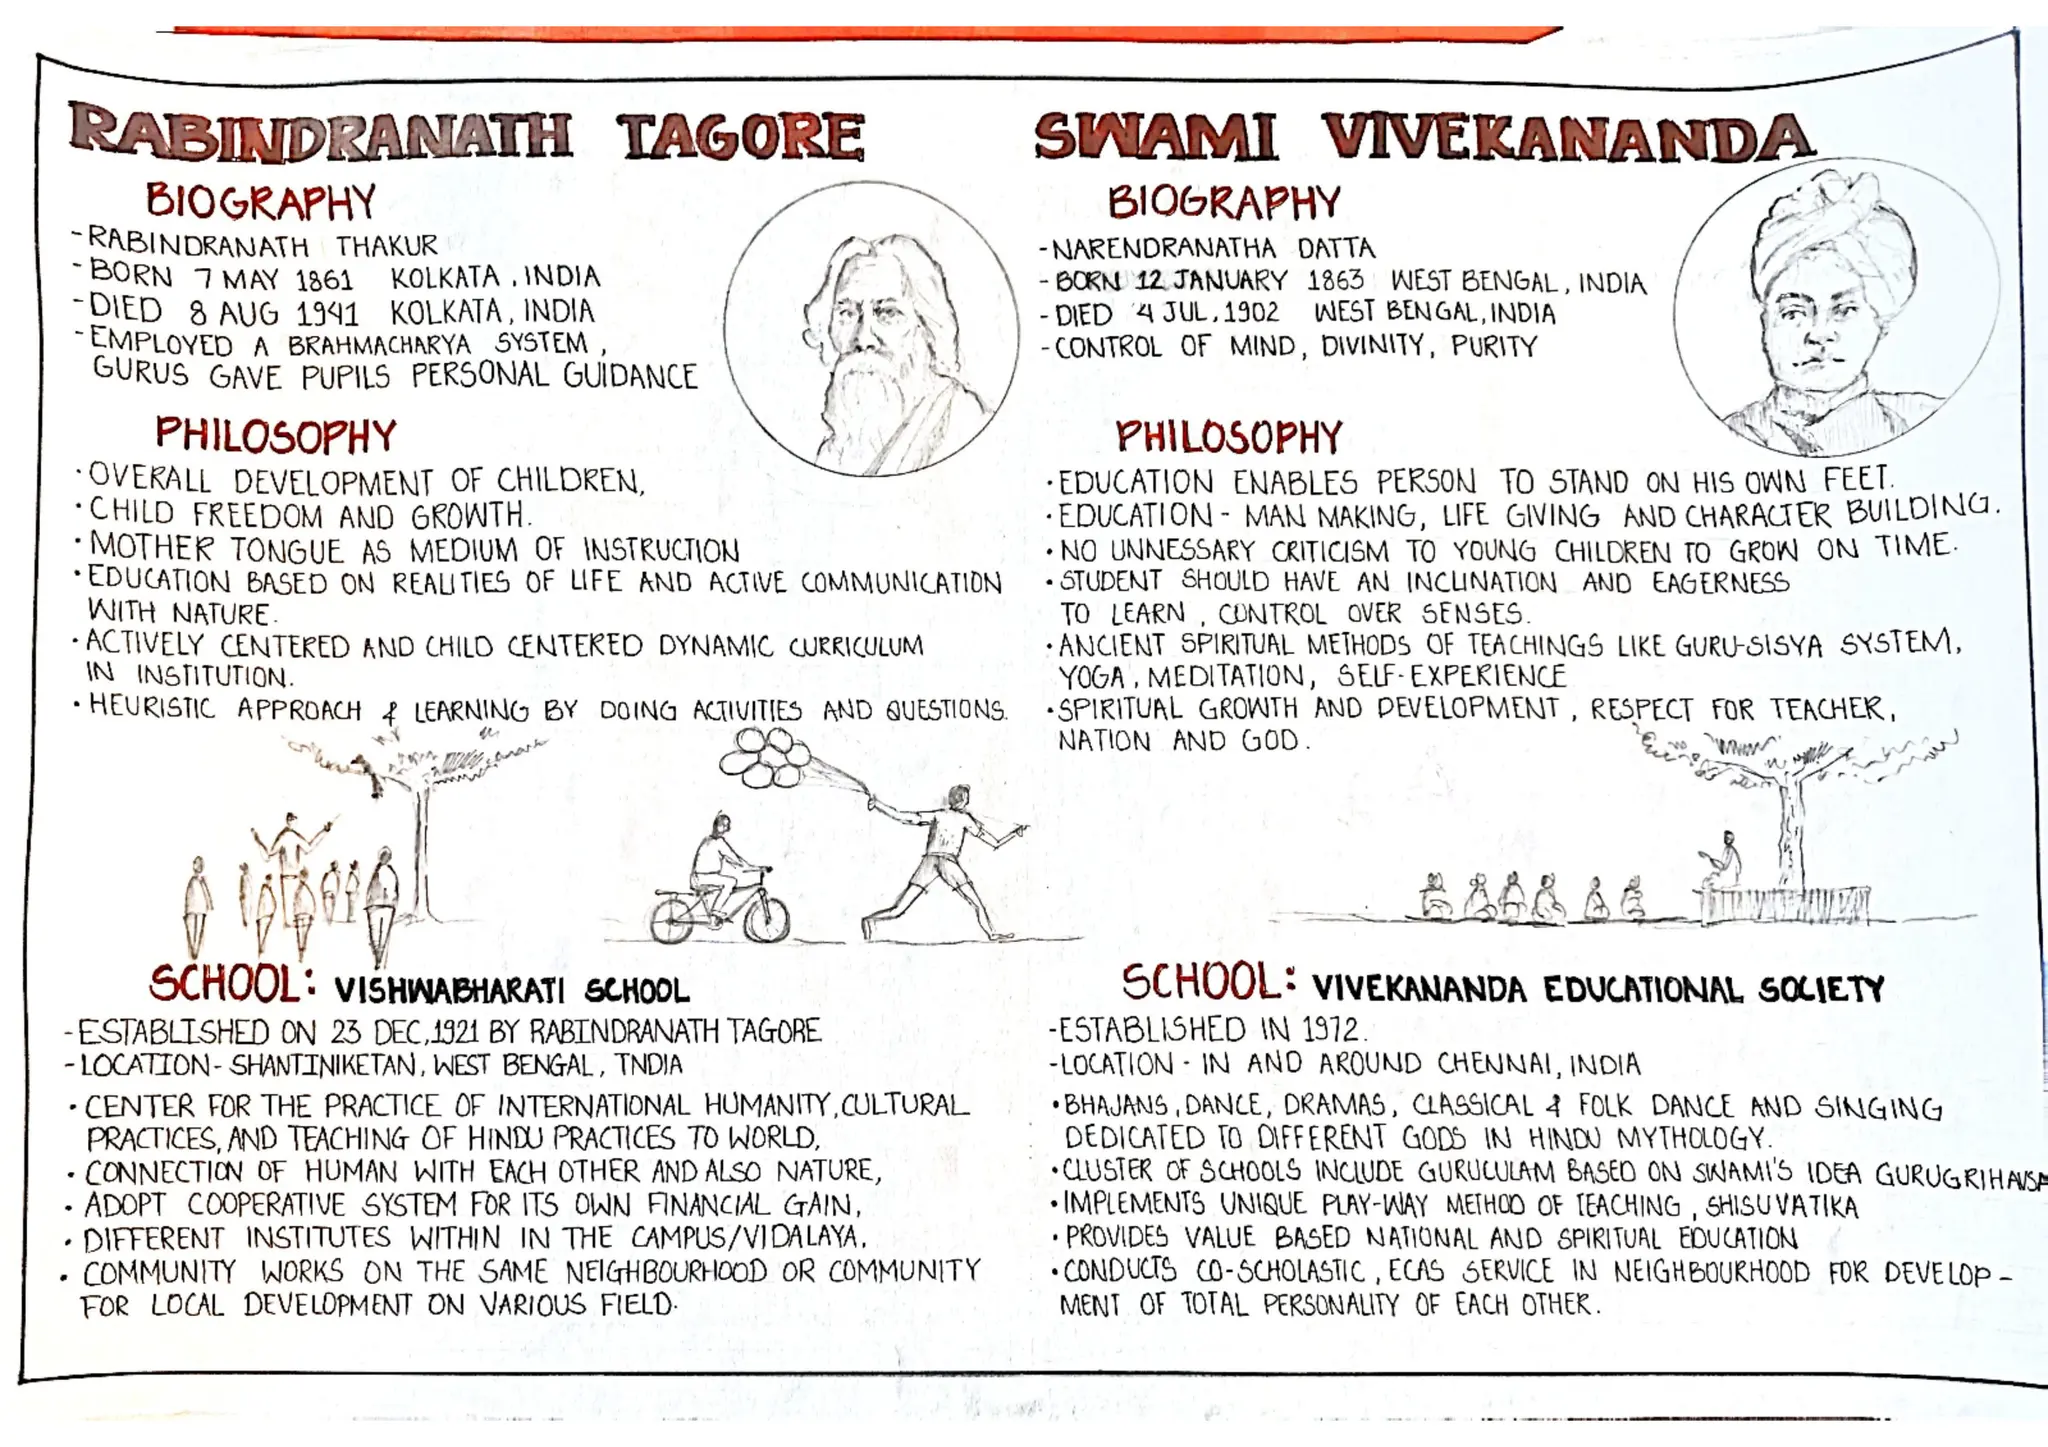 RABINDRANATH TAGORE
BIOGRAPHY
-RABINDRANATH THAKUR
-BORN 7 MAY 1861 KOLKATA, INDIA
-DIED 8 AUG 1941 KOLKATA, INDIA
-EMPLOYED A BRAHMACHARYA SYSTEM,
GURUS GAVE PUPILS PERSONAL GUIDANCE
PHILOSOPHY
·OVERALL DEVELOPMENT OF CHILDREN,
·CHILD FREEDOM AND GROWTH.
·MOTHER TONGUE AS MEDIUM OF INSTRUCTION
·EDUCATION BASED ON REALITIES OF LIFE AND ACTIVE COMMUNICATION
WITH NATURE.
·ACTIVELY CENTERED AND CHILD CENTERED DYNAMIC CURRICULUM
IN INSTITUTION.
·HEURISTIC APPROACH & LEARNING BY DOING ACTIVITIES AND QUESTIONS.
SCHOOL: VISHWABHARATI SCHOOL
-ESTABLISHED ON 23 DEC,1921 BY RABINDRANATH TAGORE
-LOCATION- SHANTINIKETAN, WEST BENGAL, INDIA
·CENTER FOR THE PRACTICE OF INTERNATIONAL HUMANITY, CULTURAL
PRACTICES, AND TEACHING OF HINDU PRACTICES TO WORLD,
·CONNECTION OF HUMAN WITH EACH OTHER AND ALSO NATURE,
·ADOPT COOPERATIVE SYSTEM FOR ITS OWN FINANCIAL GAIN,
·DIFFERENT INSTITUTES WITHIN IN THE CAMPUS/VIDALAYA,
·COMMUNITY WORKS ON THE SAME NEIGHBOURHOOD OR COMMUNITY
FOR LOCAL DEVELOPMENT ON VARIOUS FIELD.
SWAMI VIVEKANANDA
BIOGRAPHY
-NARENDRANATHA DATTA
-BORN 12 JANUARY 1863 WEST BENGAL, INDIA
-DIED 4 JUL, 1902 WEST BENGAL, INDIA
-CONTROL OF MIND, DIVINITY, PURITY
PHILOSOPHY
·EDUCATION ENABLES PERSON TO STAND ON HIS OWN FEET.
·EDUCATION - MAN MAKING, LIFE GIVING AND CHARACTER BUILDING.
·NO UNNESSARY CRITICISM TO YOUNG CHILDREN TO GROW ON TIME.
·STUDENT SHOULD HAVE AN INCLINATION AND EAGERNESS
TO LEARN, CONTROL OVER SENSES.
·ANCIENT SPIRITUAL METHODS OF TEACHINGS LIKE GURU-SISYA SYSTEM,
YOGA, MEDITATION, SELF-EXPERIENCE
·SPIRITUAL GROWTH AND DEVELOPMENT, RESPECT FOR TEACHER,
NATION AND GOD.
SCHOOL: VIVEKANANDA EDUCATIONAL SOCIETY
-ESTABLISHED IN 1972.
-LOCATION - IN AND AROUND CHENNAI, INDIA
·BHAJANS, DANCE, DRAMAS, CLASSICAL & FOLK DANCE AND SINGING
DEDICATED TO DIFFERENT GODS IN HINDU MYTHOLOGY.
·CLUSTER OF SCHOOLS INCLUDE GURUCULAM BASED ON SWAMI'S IDEA
·IMPLEMENTS UNIQUE PLAY-WAY METHOD OF TEACHING, SHISUVATIKA
·PROVIDES VALUE BASED NATIONAL AND SPIRITUAL EDUCATION
·CONDUCTS CO-SCHOLASTIC, ECAS SERVICE IN NEIGHBOURHOOD FOR DEVELOP-
MENT OF TOTAL PERSONALITY OF EACH OTHER.